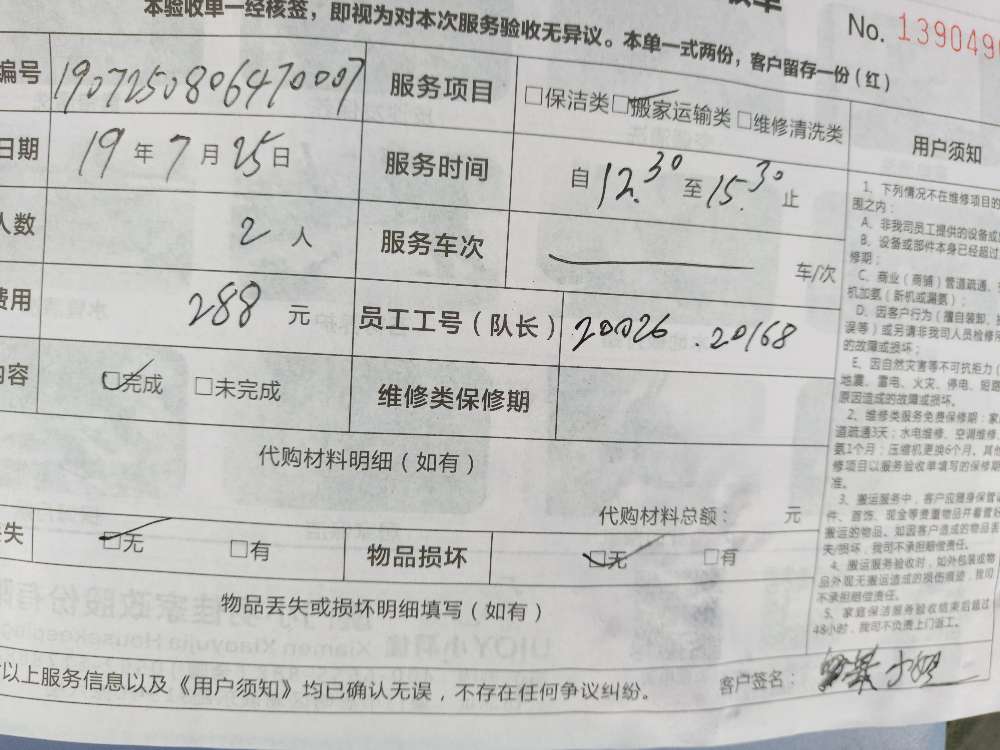 本验收单一经核签，即视为对本次服务验收无异议。本单一式两份，客户留存一份（红）
No. 139049
编号 1907250806470007 服务项目 □保洁类 ☑搬家运输类 □维修清洗类
日期 19年7月25日 服务时间 自12.30至15.30止
人数 2人 服务车次 车/次
费用 288元 员工工号（队长） 200026.20168
内容 ☑完成 □未完成 维修类保修期
代购材料明细（如有）
代购材料总额： 元
丢失 ☑无 □有 物品损坏 ☑无 □有
物品丢失或损坏明细填写（如有）
以上服务信息以及《用户须知》均已确认无误，不存在任何争议纠纷。
客户签名： 小姐
用户须知
1、下列情况不在维修项目的
围之内：
A、非我司员工提供的设备或
B、设备或部件本身已经超过
修期；
C、商业（商铺）管道疏通、
机加氨（新机或漏氨）；
D、因客户行为（擅自装卸、
误等）或另请非我司人员检修
的故障或损坏；
E、因自然灾害等不可抗拒力（
地震、雷电、火灾、停电、短路
原因造成的故障或损坏。
2、维修类服务免费保修期：家
道疏通3天；水电维修、空调维修
氨1个月；压缩机更换6个月。其他
修项目以服务验收单填写的保修期
准。
3、搬运服务中，客户应随身保管
件、首饰、现金等贵重物品并看管好
搬运的物品。如因客户造成的物品丢
失/损坏，我司不承担赔偿责任。
4、搬运服务验收时，如外包装或物
品外观无搬运造成的损伤痕迹，我司
不承担赔偿责任。
5、家庭保洁服务验收结束后超过
48小时，我司不负责上门返工。